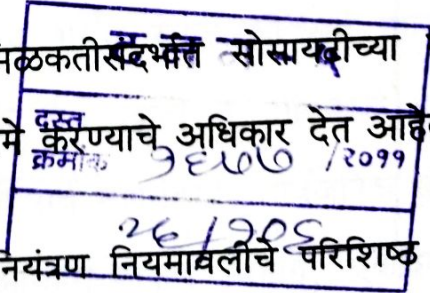 मिळकतीसंदर्भात सोसायटीच्या
मे करण्याचे अधिकार देत आहे
दस्त क्रमांक १६७७ /२०११
२८/१०६
नियंत्रण नियमावलीचे परिशिष्ठ